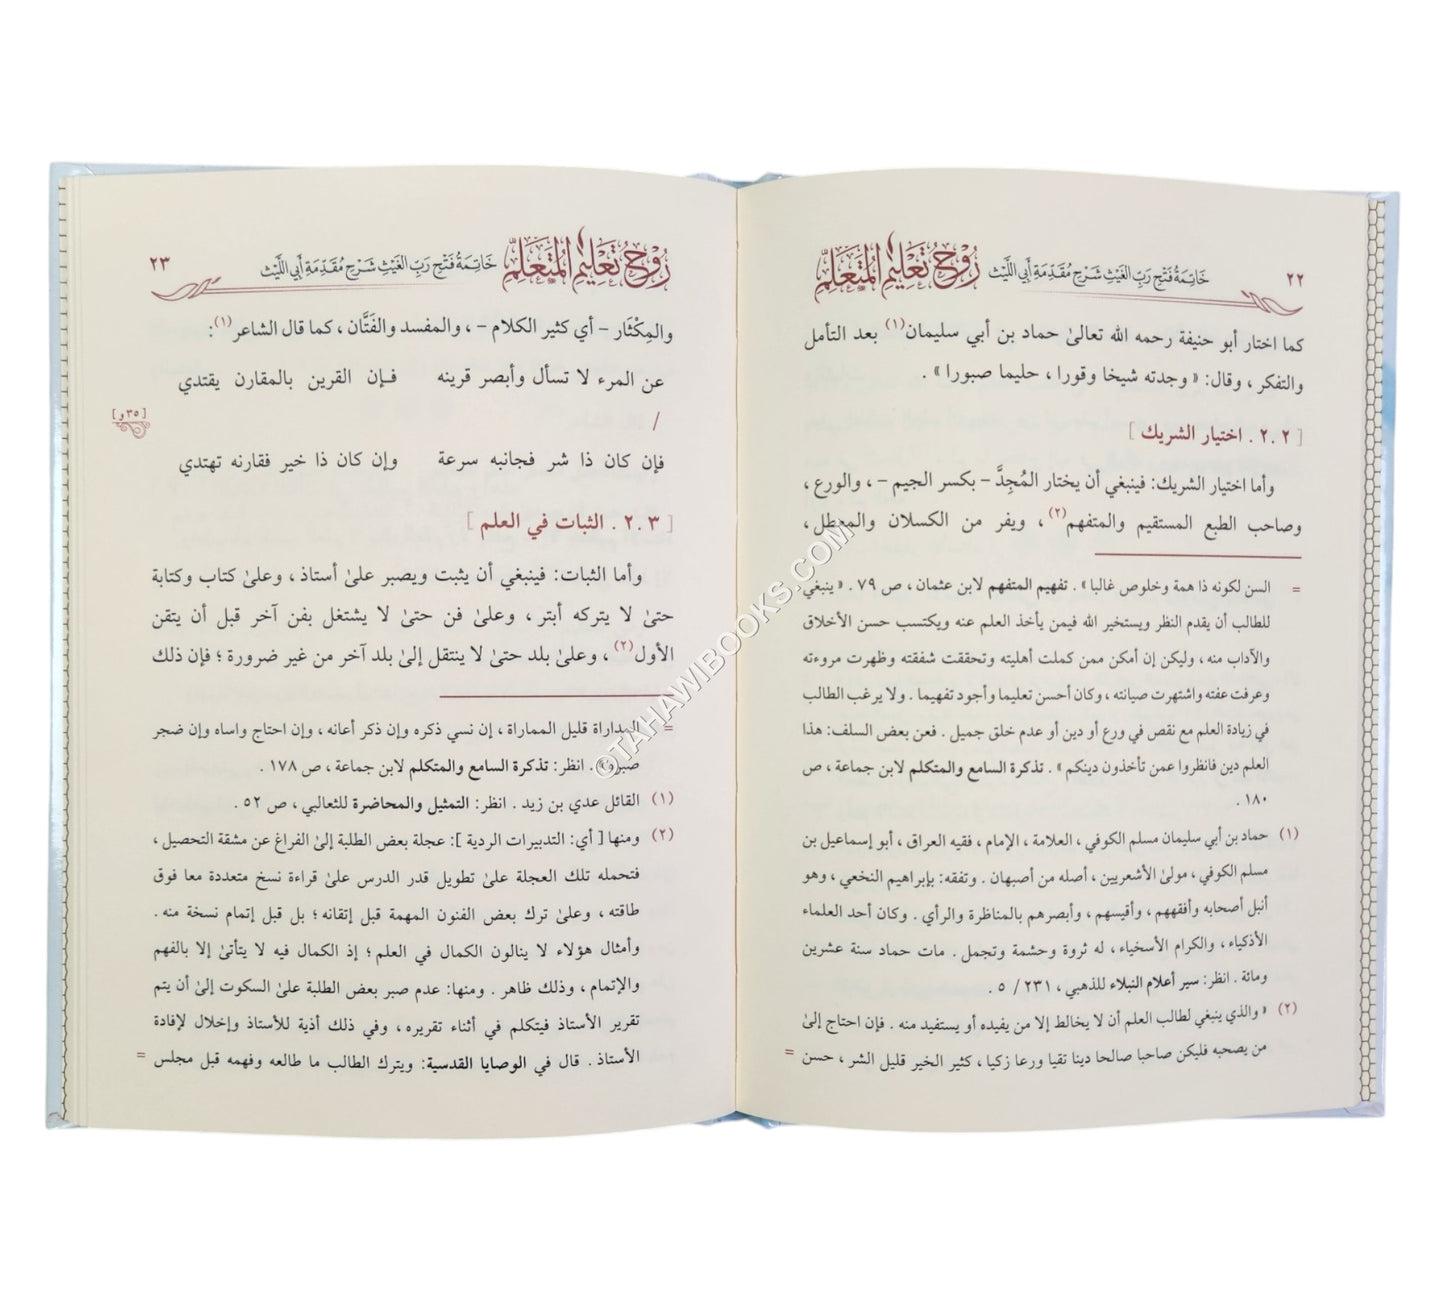 ٢٢ خَاتِمَةُ فَتْحِ رَبِّ الغَيْثِ شَرْحِ مُقَدِّمَةِ أَبِي اللَّيْث رُوْحُ تَعْلِيْمِ الْمُتَعَلِّمِ
كما اختار أبو حنيفة رحمه الله تعالىٰ حماد بن أبي سليمان(١) بعد التأمل
والتفكر ، وقال: « وجدته شيخا وقورا ، حليما صبورا » .
[ ٢.٢ . اختيار الشريك ]
وأما اختيار الشريك: فينبغي أن يختار المُجِدَّ – بكسر الجيم – ، والورع ،
وصاحب الطبع المستقيم والمتفهم(٢) ، ويفر من الكسلان والمعطل ،
= السن لكونه ذا همة وخلوص غالبا » . تفهيم المتفهم لابن عثمان ، ص ٧٩ . « ينبغي
للطالب أن يقدم النظر ويستخير الله فيمن يأخذ العلم عنه ويكتسب حسن الأخلاق
والآداب منه ، وليكن إن أمكن ممن كملت أهليته وتحققت شفقته وظهرت مروءته
وعرفت عفته واشتهرت صيانته ، وكان أحسن تعليما وأجود تفهيما . ولا يرغب الطالب
في زيادة العلم مع نقص في ورع أو دين أو عدم خلق جميل . فعن بعض السلف: هذا
العلم دين فانظروا عمن تأخذون دينكم » . تذكرة السامع والمتكلم لابن جماعة ، ص
١٨٠ .
(١) حماد بن أبي سليمان مسلم الكوفي ، العلامة ، الإمام ، فقيه العراق ، أبو إسماعيل بن
مسلم الكوفي ، مولىٰ الأشعريين ، أصله من أصبهان . وتفقه: بإبراهيم النخعي ، وهو
أنبل أصحابه وأفقههم ، وأقيسهم ، وأبصرهم بالمناظرة والرأي . وكان أحد العلماء
الأذكياء ، والكرام الأسخياء ، له ثروة وحشمة وتجمل . مات حماد سنة عشرين
ومائة . انظر: سير أعلام النبلاء للذهبي ، ٢٣١ / ٥ .
(٢) « والذي ينبغي لطالب العلم أن لا يخالط إلا من يفيده أو يستفيد منه . فإن احتاج إلىٰ
من يصحبه فليكن صاحبا صالحا دينا تقيا ورعا زكيا ، كثير الخير قليل الشر ، حسن =
رُوْحُ تَعْلِيْمِ الْمُتَعَلِّمِ خَاتِمَةُ فَتْحِ رَبِّ الغَيْثِ شَرْحِ مُقَدِّمَةِ أَبِي اللَّيْث ٢٣
والمِكْثَار – أي كثير الكلام – ، والمفسد والفَتَّان ، كما قال الشاعر(١) :
عن المرء لا تسأل وأبصر قرينه فإن القرين بالمقارن يقتدي
/ [٣٥ و]
فإن كان ذا شر فجانبه سرعة وإن كان ذا خير فقارنه تهتدي
[ ٢.٣ . الثبات في العلم ]
وأما الثبات: فينبغي أن يثبت ويصبر علىٰ أستاذ ، وعلىٰ كتاب وكتابة
حتىٰ لا يتركه أبتر ، وعلىٰ فن حتىٰ لا يشتغل بفن آخر قبل أن يتقن
الأول(٢) ، وعلىٰ بلد حتىٰ لا ينتقل إلىٰ بلد آخر من غير ضرورة ؛ فإن ذلك
= المداراة قليل المماراة ، إن نسي ذكره وإن ذكر أعانه ، وإن احتاج واساه وإن ضجر
صبره » . انظر: تذكرة السامع والمتكلم لابن جماعة ، ص ١٧٨ .
(١) القائل عدي بن زيد . انظر: التمثيل والمحاضرة للثعالبي ، ص ٥٢ .
(٢) ومنها [ أي: التدبيرات الردية ]: عجلة بعض الطلبة إلىٰ الفراغ عن مشقة التحصيل ،
فتحمله تلك العجلة علىٰ تطويل قدر الدرس علىٰ قراءة نسخ متعددة معا فوق
طاقته ، وعلىٰ ترك بعض الفنون المهمة قبل إتقانه ؛ بل قبل إتمام نسخة منه .
وأمثال هؤلاء لا ينالون الكمال في العلم ؛ إذ الكمال فيه لا يتأتىٰ إلا بالفهم
والإتمام ، وذلك ظاهر . ومنها: عدم صبر بعض الطلبة علىٰ السكوت إلىٰ أن يتم
تقرير الأستاذ فيتكلم في أثناء تقريره ، وفي ذلك أذية للأستاذ وإخلال لإفادة
الأستاذ . قال في الوصايا القدسية: ويترك الطالب ما طالعه وفهمه قبل مجلس =
©TAHAWIBOOKS.COM